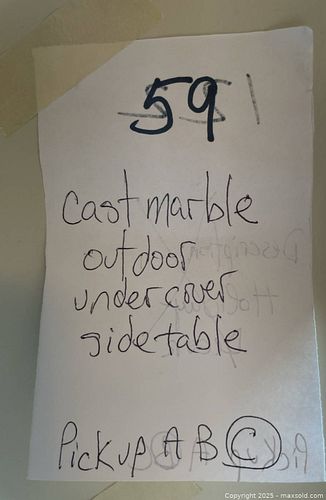 59
cast marble
outdoor
undercover
side table
Pickup A B C
Copyright 2025 - maxsold.com